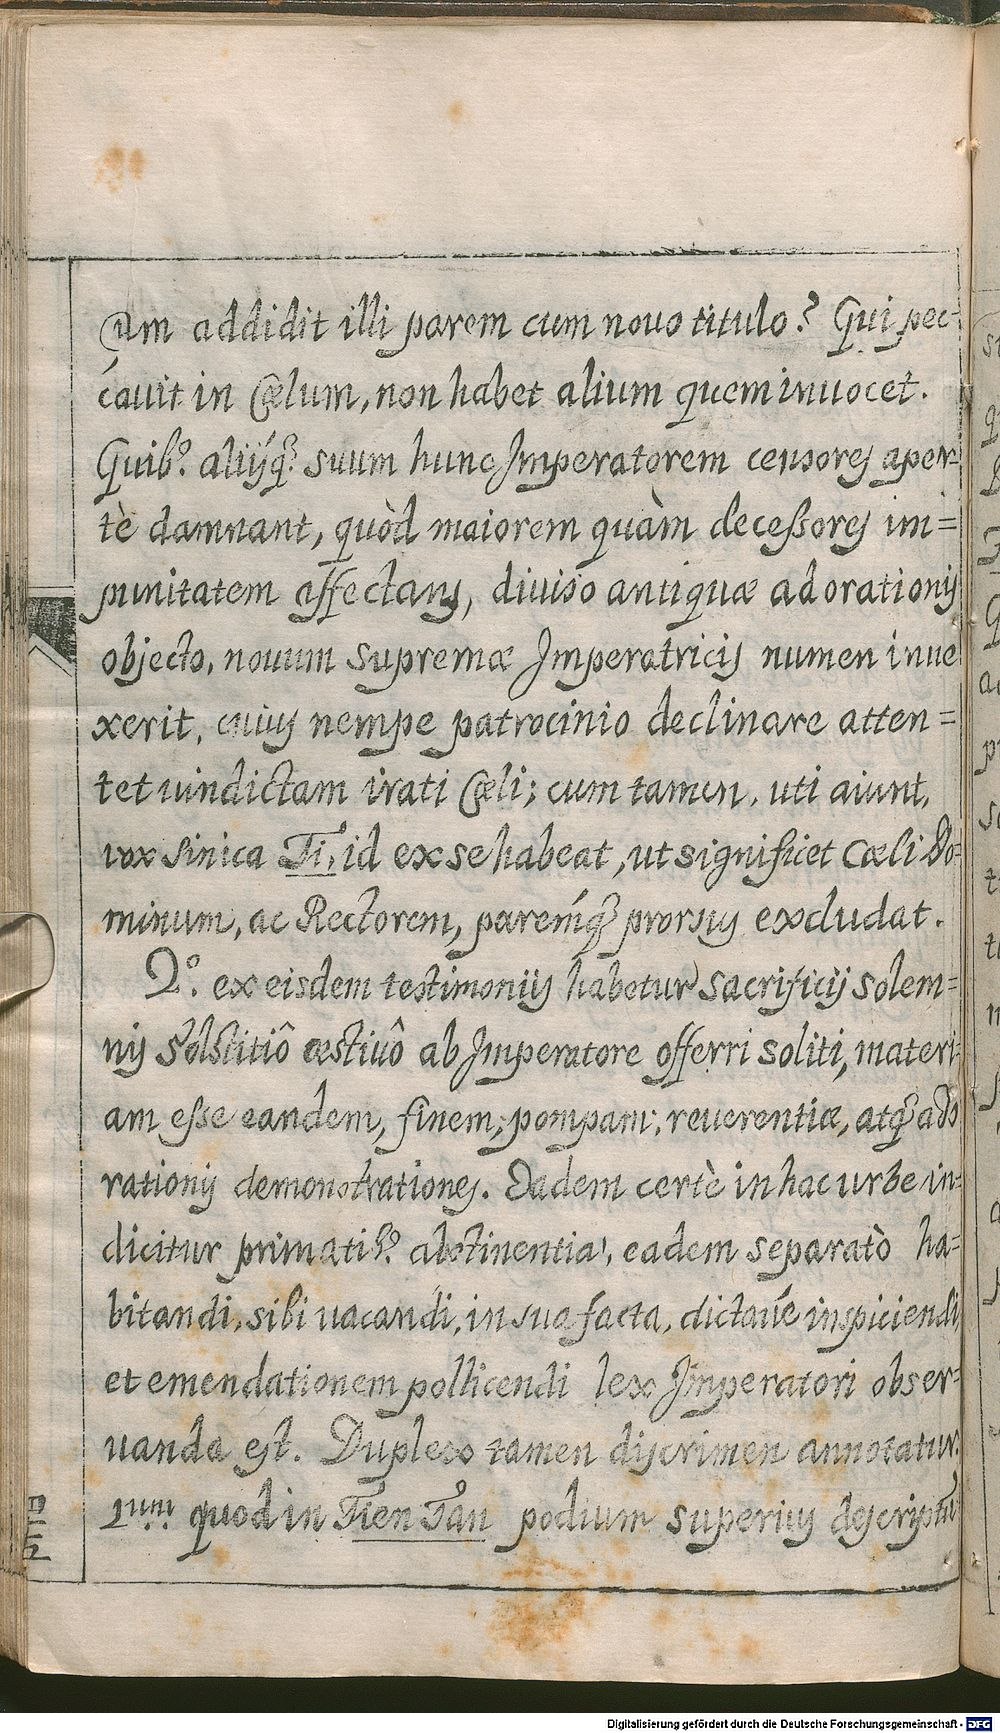 um addidit illi parem cum nouo titulo? Qui pec-
cauit in Cælum, non habet alium quem inuocet.
Quib⁹. alijsq́₃. suum hunc Imperatorem censores aper-
tè damnant, quòd maiorem quàm decessores im=
punitatem affectans, diuiso antiquæ adorationis
objecto, nouum Supremæ Imperatricis numen inue
xerit, cuius nempe patrocinio declinare atten=
tet uindictam irati Cæli; cum tamen, uti aiunt,
uox Sinica Ti, id ex se habeat, ut significet Cæli Do-
minum, ac Rectorem, paremq́₃ prorsus excludat.
2.º ex eisdem testimonijs habetur Sacrificij solem=
nis Solstitiô æstiuô ab Imperatore offerri soliti, materi-
am esse eandem, finem, pompam, reuerentiæ, atq₃ ado
rationis demonstrationes. Eadem certè in hac urbe in-
dicitur primatib⁹. abstinentia, eadem separatò ha=
bitandi, sibi uacandi, in sua facta, dictaue inspiciendi
et emendationem pollicendi lex Imperatori obser-
uanda est. Duplex tamen discrimen annotatur.
1um quod in Tien Tan podium superius descriptū